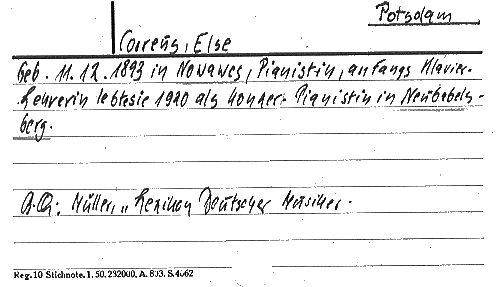 Potsdam
Correns, Else
Geb. 11.12.1893 in Nowawes, Pianistin, anfangs Klavier-
Lehrerin lebte sie 1920 als Konzer- Pianistin in Neubabels-
berg.
Müller, „Lexikon Deutscher Musiker.
Reg. 10 Stichnote. 1. 50. 232000. A. 803. S. 4062